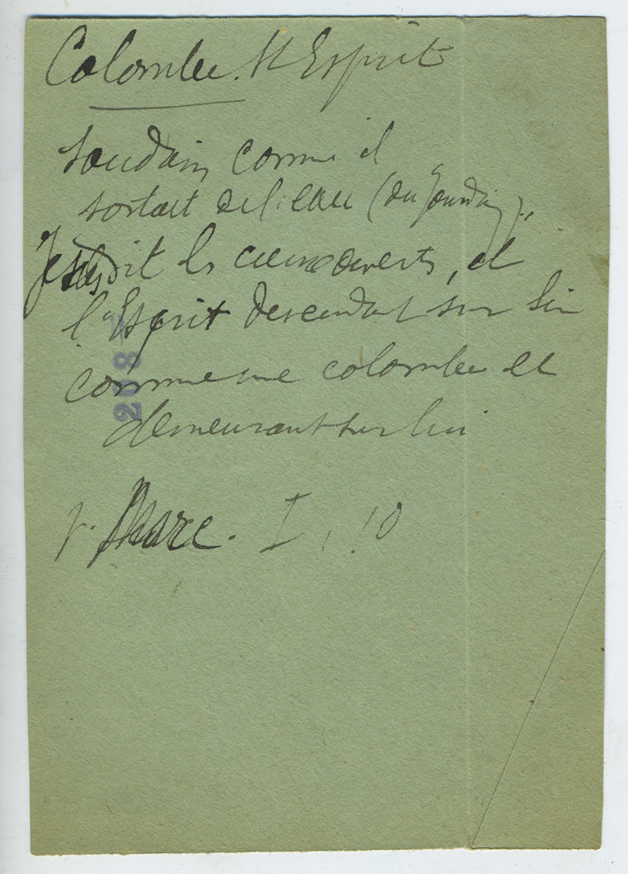 Colombe. St Esprit
Soudain comme il
sortait de l'eau (du Jourdain),
Jésus vit les cieux ouverts, et
l'Esprit descendant sur lui
comme une colombe et
demeurant sur lui
208
v. Marc. I, 10